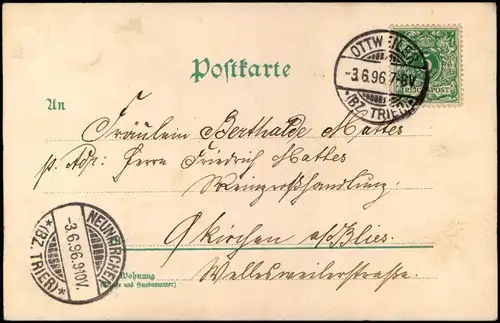 OTTWEILER
-3.6.96.7-8V.
*(BZ. TRIER)*
REICHSPOST
Postkarte
An
Fräulein Berthalde Mattes
p. Adr: Herrn Friedrich Mattes
NEUNKIRCHEN
-3.6.96.9-10V.
*(BZ. TRIER)*
Nkirchen a/d Blies.
Wohnung
(Straße und Hausnummer)
Wellesweilerstraße.